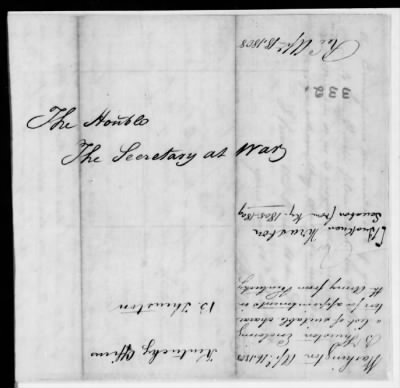 The Honble
The Secretary at War
Recd Apl. 18. 1808
Washington Apl. 16. 1808
B. Thruston Enclosing
a list of suitable charac
ters for appointments in
the Army from Kentucky
(Buckner Thruston
Senator from Ky. 1805-1809
B. Thruston
Kentucky Officers